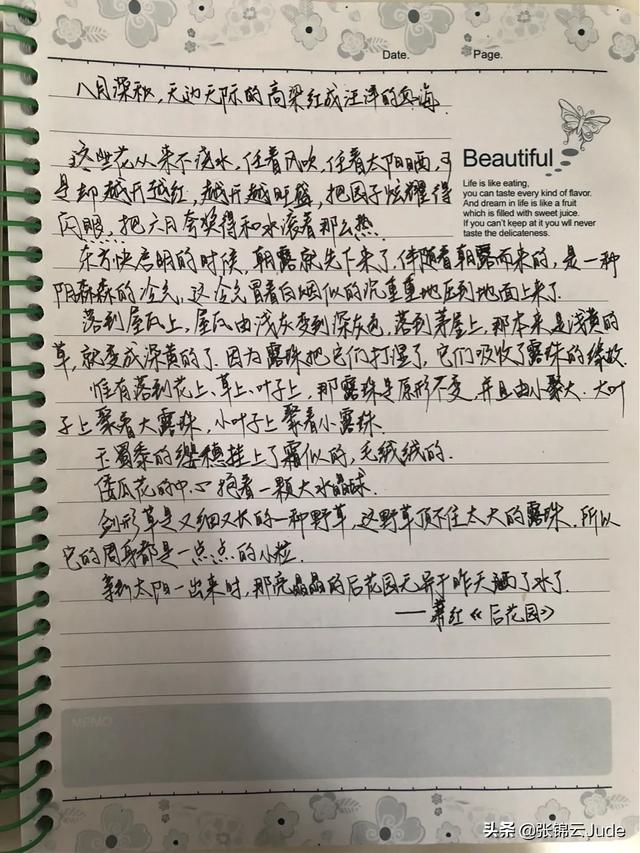 Date.
Page.
八月深秋，无边无际的高粱红成汪洋的血海。
这些花从来不浇水，任着风吹，任着太阳晒，可
是却越开越红，越开越旺盛，把园子炫耀得
闪眼，把六月夸奖得和水滚着那么热。
Beautiful
Life is like eating,
you can taste every kind of flavor.
And dream in life is like a fruit
which is filled with sweet juice.
If you can't keep at it you will never
taste the delicateness.
东方快启明的时候，朝露就先下来了，伴随着朝露而来的，是一种
阴森森的冷气，这冷气冒着白烟似的沉重重地压到地面上来了。
落到屋瓦上，屋瓦由浅灰变到深灰色，落到茅屋上，那本来是浅黄的
草，就变成深黄的了。因为露珠把它们打湿了，它们吸收了露珠的缘故。
惟有落到花上、草上、叶子上，那露珠是原形不变，并且由小聚大。大叶
子上聚着大露珠，小叶子上聚着小露珠。
玉蜀黍的缨穗挂上了霜似的，毛绒绒的。
倭瓜花的中心抱着一颗大水晶球。
剑形草是又细又长的一种野草，这野草顶不住太大的露珠，所以
它的周身都是一点点的小粒。
等到太阳一出来时，那亮晶晶的后花园无异于昨天洒了水了。
——萧红《后花园》
MEMO
头条 @张锦云Jude